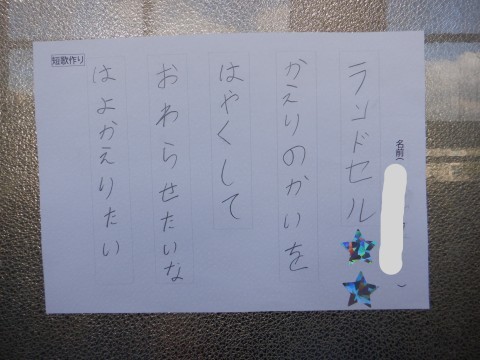 名前( )
ランドセル
かえりのかいを
はやくして
おわらせたいな
はよかえりたい
短歌作り